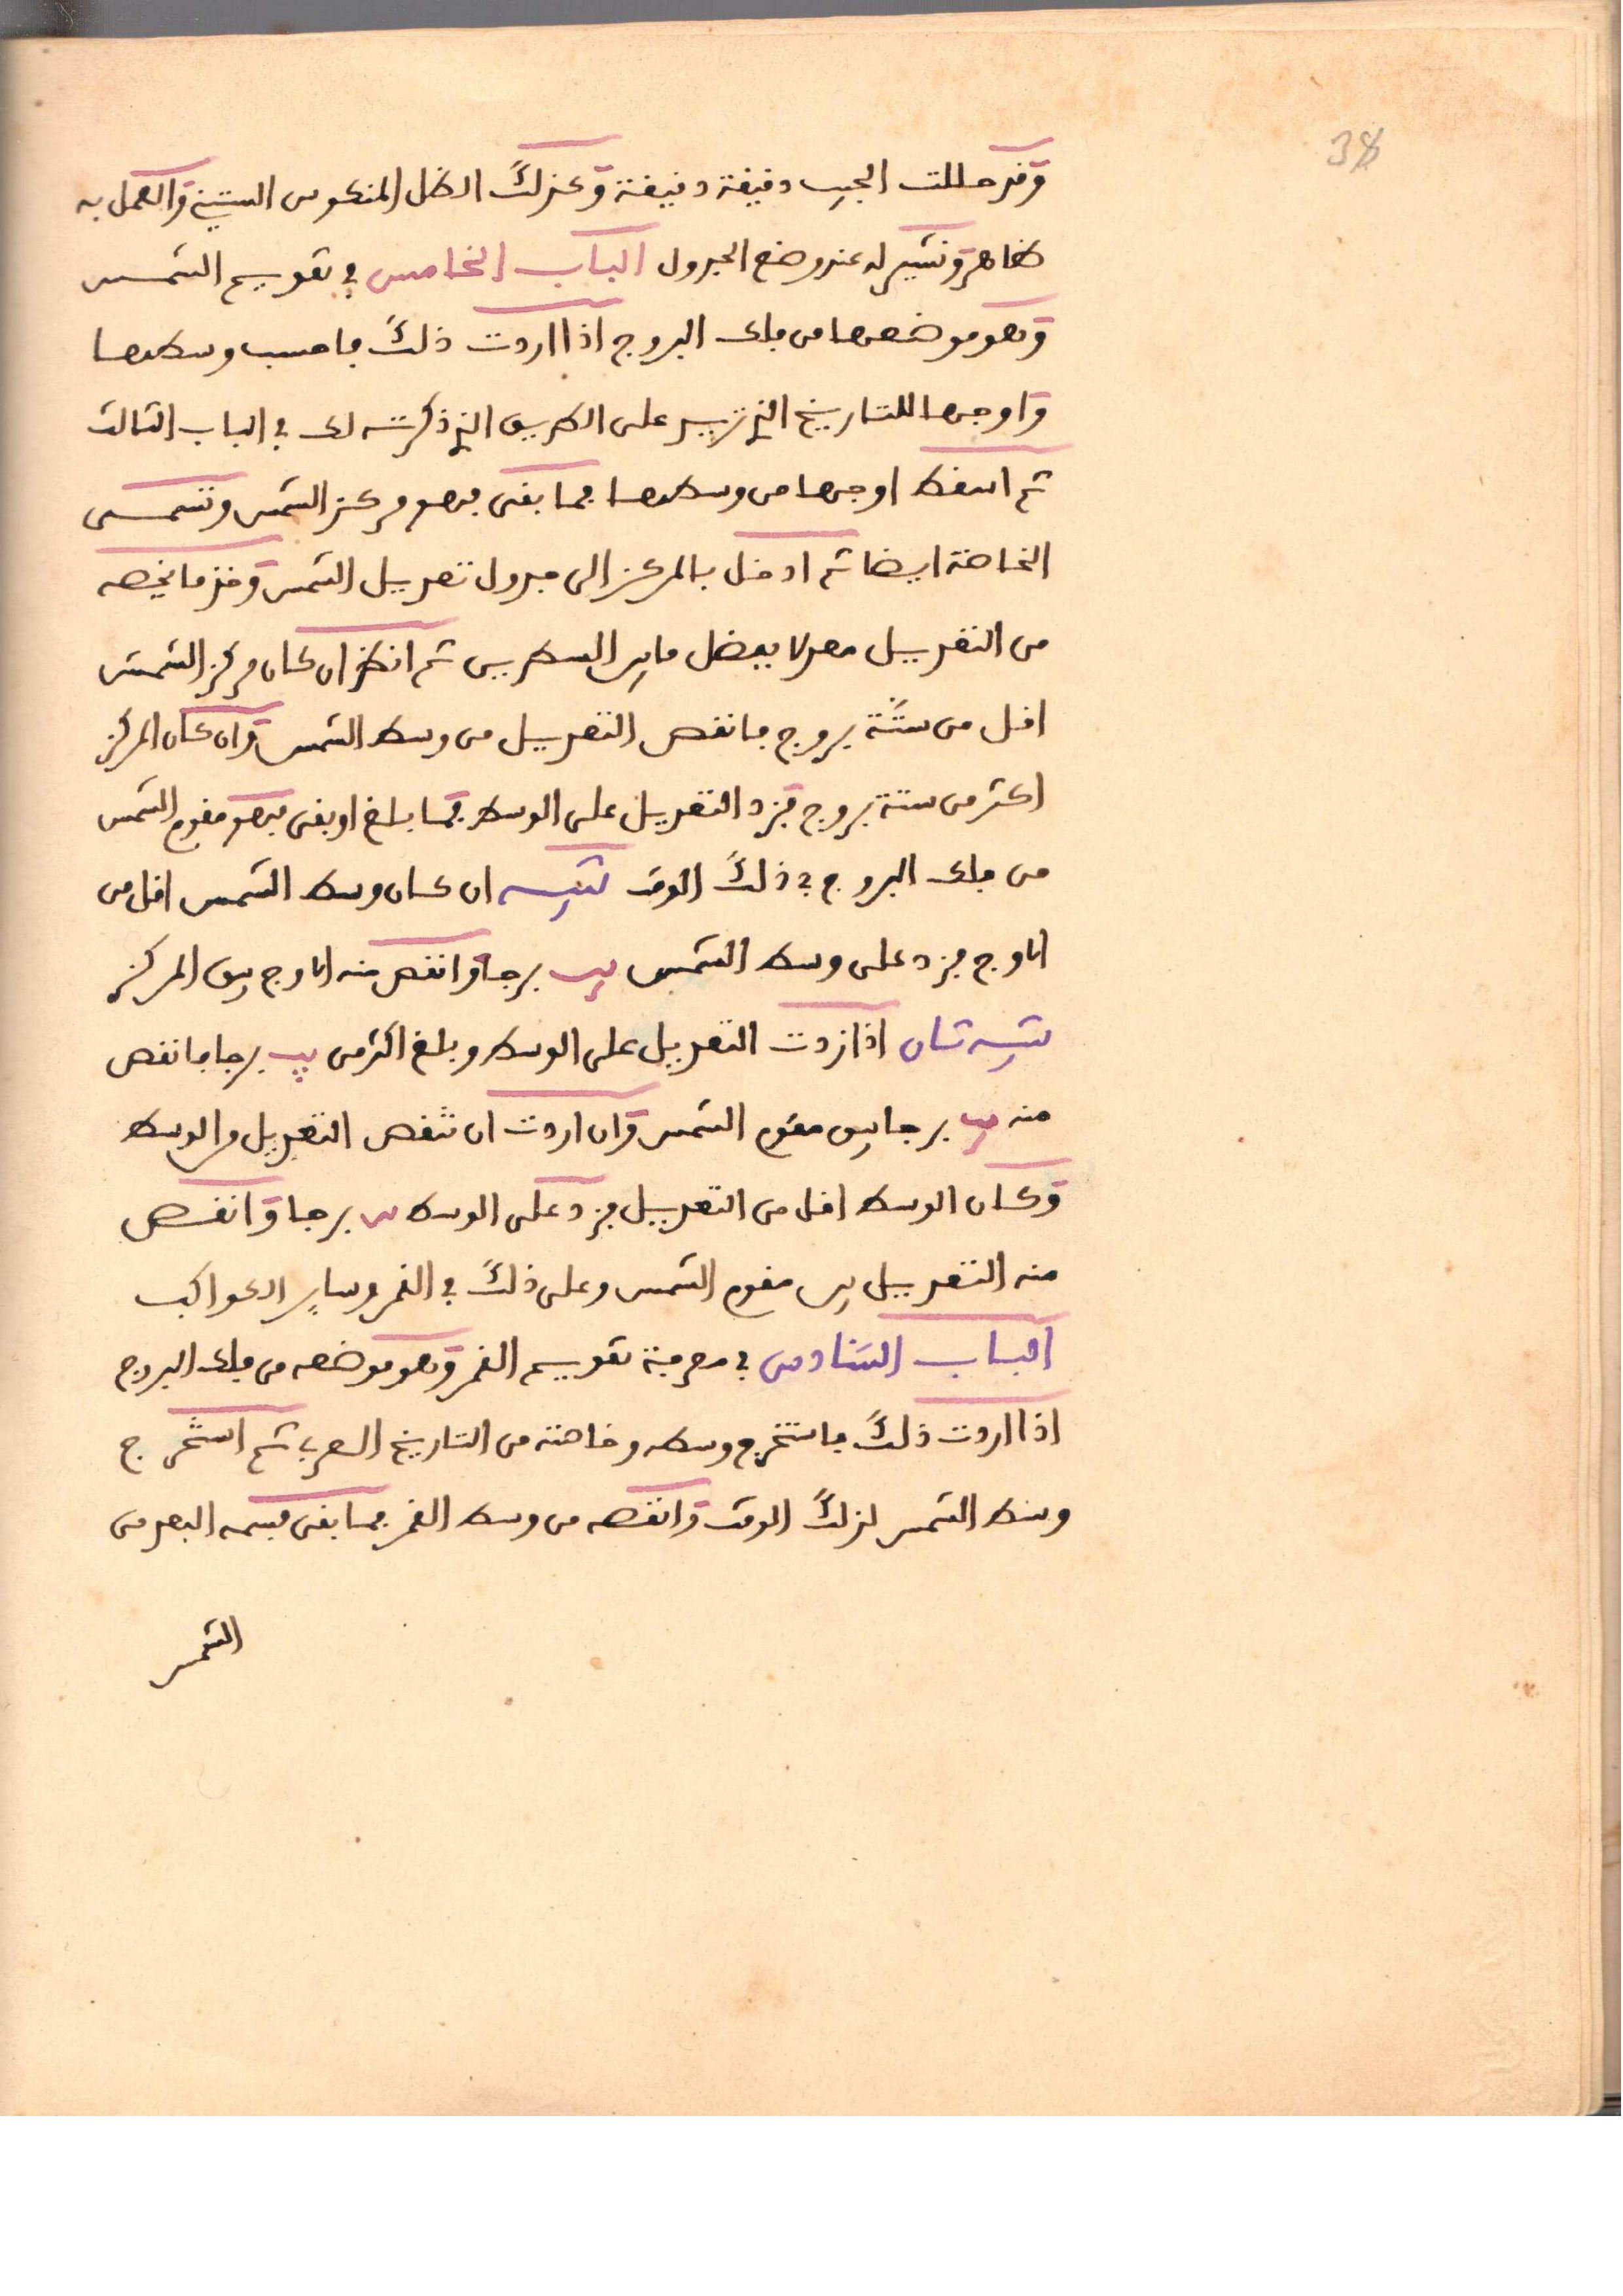 38
وقد حللت الجيب دقيقة دقيقة وكذلك الظل المنكوس الستيني والعمل به
ظاهر ونشير له عند وضع الجدول الباب الخامس في تقويم الشمس
وهو موضعها من فلك البروج اذا اردت ذلك فاحسب وسطها
واوجها للتاريخ الذي تريد على الطريق الذي ذكرته لك في الباب الثالث
ثم اسقط اوجها من وسطها فما بقى فهو مركز الشمس وتسمى
الخاصة ايضا ثم ادخل بالمركز الى جدول تعديل الشمس وخذ ما يخصه
من التعديل معدلا بفضل ما بين السطرين ثم انظر ان كان مركز الشمس
اقل من ستة بروج فانقص التعديل من وسط الشمس وان كان المركز
اكثر من ستة بروج فزد التعديل على الوسط فما بلغ او بقى فهو مقوم الشمس
من فلك البروج في ذلك الوقت تنبيه ان كان وسط الشمس اقل من
الاوج فزد على وسط الشمس يب برجا وانقص منه الاوج يبق المركز
تنبيه ثان اذا زدت التعديل على الوسط وبلغ اكثر من يب برجا فانقص
منه يب برجا يبق مقوم الشمس وان اردت ان تنقص التعديل من الوسط
وكان الوسط اقل من التعديل فزد على الوسط يب برجا وانقص
منه التعديل يبق مقوم الشمس وعلى ذلك في القمر وساير الكواكب
الباب السادس في معرفة تقويم القمر وهو موضعه من فلك البروج
اذا اردت ذلك فاستخرج وسطه وخاصته من التاريخ العربي ثم استخرج
وسط الشمس لذلك الوقت وانقصه من وسط القمر فما بقى فسمه البعد من
الشمس